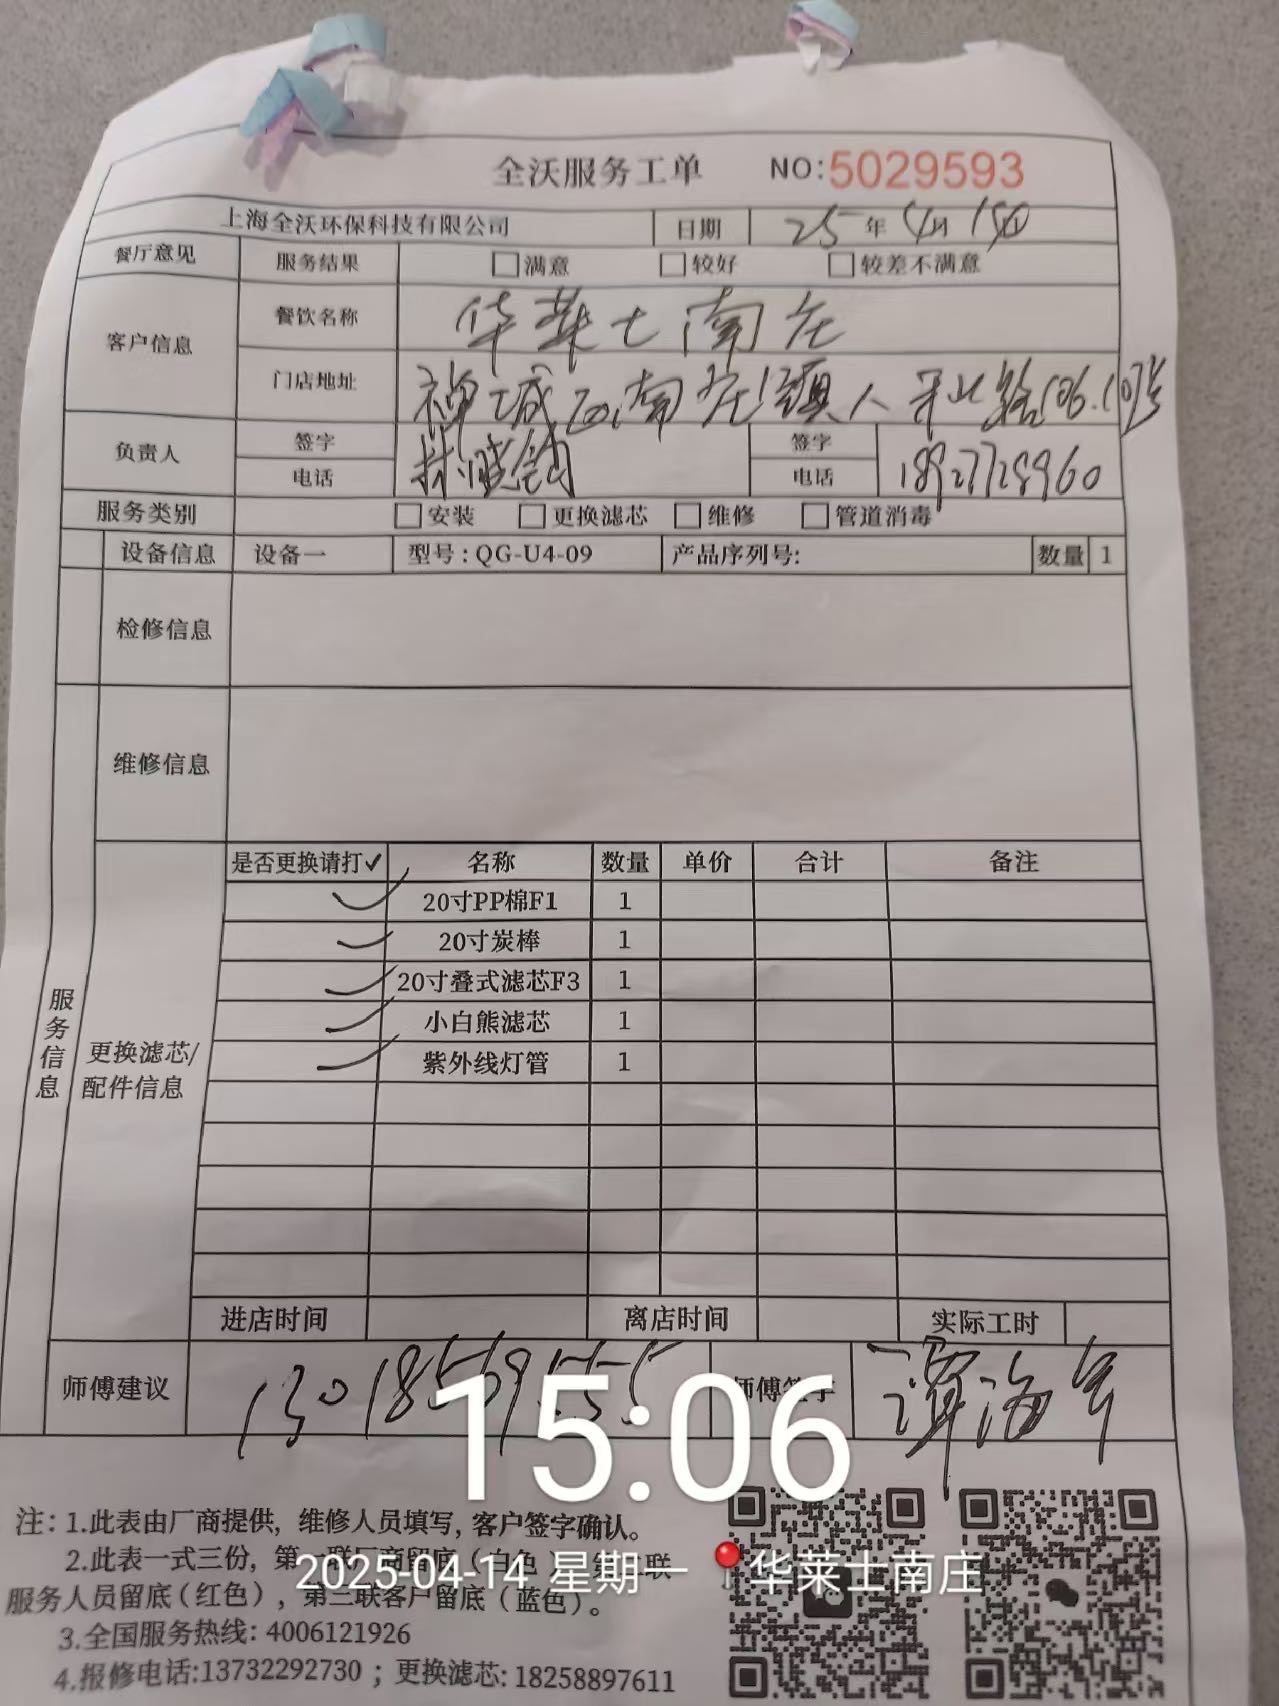 全沃服务工单 NO:5029593
上海全沃环保科技有限公司 日期 25年4月 日
餐厅意见 服务结果 □满意 □较好 □较差不满意
客户信息 餐饮名称 华莱士南庄
门店地址 禅城区南庄镇人和北路106.107号
负责人 签字 林晓 签字
电话 电话 18927728960
服务类别 □安装 □更换滤芯 □维修 □管道消毒
设备信息 设备一 型号:QG-U4-09 产品序列号: 数量 1
检修信息
维修信息
是否更换请打✓ 名称 数量 单价 合计 备注
✓ 20寸PP棉F1 1
✓ 20寸炭棒 1
✓ 20寸叠式滤芯F3 1
✓ 小白熊滤芯 1
✓ 紫外线灯管 1
服务信息
更换滤芯/
配件信息
进店时间 离店时间 实际工时
师傅建议 师傅签字 谭海
15:06
注: 1.此表由厂商提供, 维修人员填写, 客户签字确认。
2.此表一式三份, 第一联厂商留底(白色), 第二联
2025-04-14 星期一 华莱士南庄
服务人员留底(红色), 第三联客户留底(蓝色)。
3.全国服务热线: 4006121926
4.报修电话:13732292730 ; 更换滤芯: 18258897611